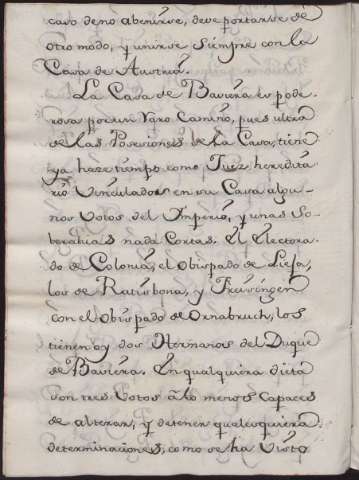 caso de no abenirse, deve portarse de
otro modo, y unirse siempre con la
Casa de Austria.
La Casa de Baviera es pode-
rosa por un raro Camino, pues ultra
de las Posesiones de la Casa, tiene
ya haze tiempo como Juez heredita-
rio vinculados en su Casa algu-
nos Votos del Imperio, y unas so-
beranias nada Cortas. El Electora-
do de Colonia, el obispado de Lieja,
los de Ratisbona, y Freisingen
con el Obispado de Ornabruch, los
tienen oy dos Hermanos del Duque
de Baviera. En qualquiera dieta
son tres Votos a lo menos Capaces
de alterar, y detener qualesquiera
determinaciones, como se ha Visto